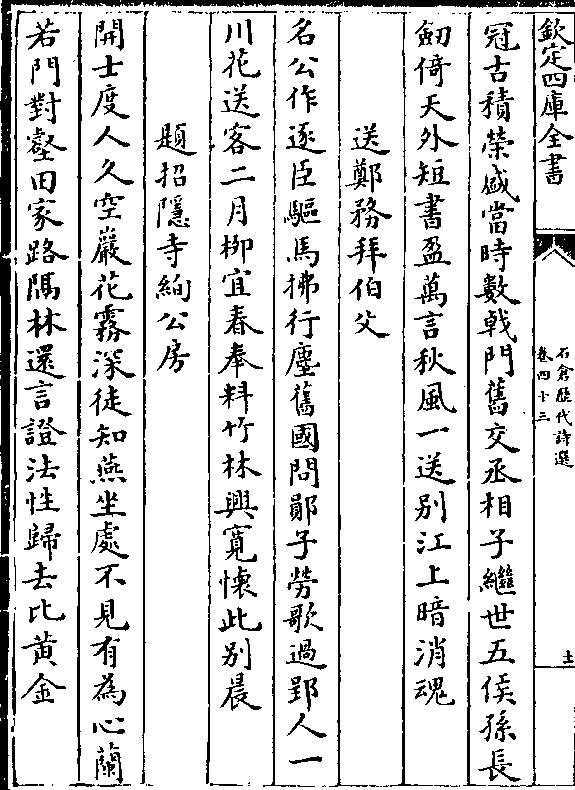 欽定四庫全書
石倉歷代詩選
卷四十三
十一
冠古積榮盛當時數戟門舊交丞相子繼世五侯孫長
劒倚天外短書盈萬言秋風一送别江上暗消魂
送鄭務拜伯父
名公作逐臣驅馬拂行塵舊國問鄖子勞歌過郢人一
川花送客二月柳宜春奉料竹林興寛懷此别晨
題招隱寺絢公房
開士度人久空巖花霧深徒知燕坐處不見有為心蘭
若門對壑田家路隔林還言證法性歸去比黄金